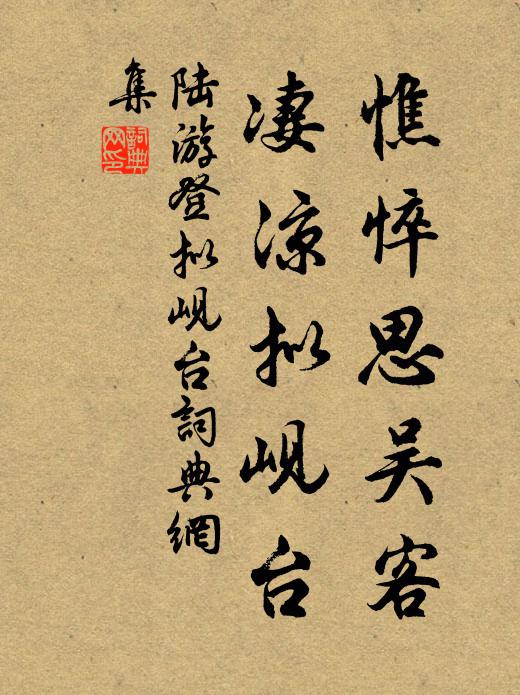 憔悴思吴客
凄凉拟岘台
陆游登拟岘台詞典網
集
詞典
网印